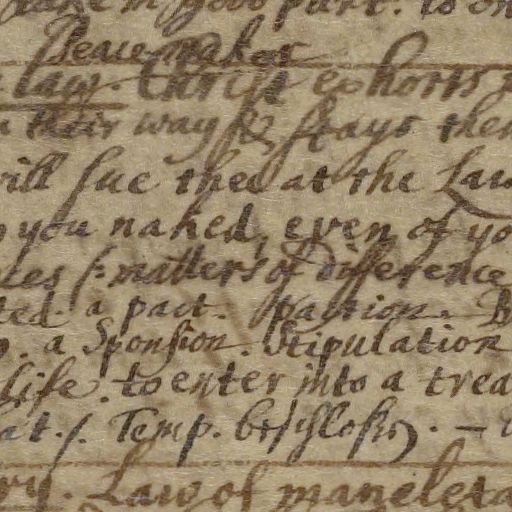 take in good part. to
Peace maker
Law. Christ exhorts
their way & stays
will sue thee at the Law
you naked, even of yo
matters of difference
ted. a pact. paction. B
a Sponsion. Stipulation
life. to enter into a trea
at. Temp.
ry. Law of